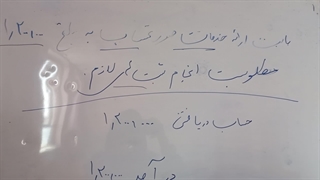 بابت ارائه خدمات مورد تضاب به مبلغ ۱٫۲۰۰٫۰۰۰
مطلوبست انجام ثبت های لازم.
حساب دریافتنی ۱٫۲۰۰٫۰۰۰
درآمد ۱٫۲۰۰٫۰۰۰